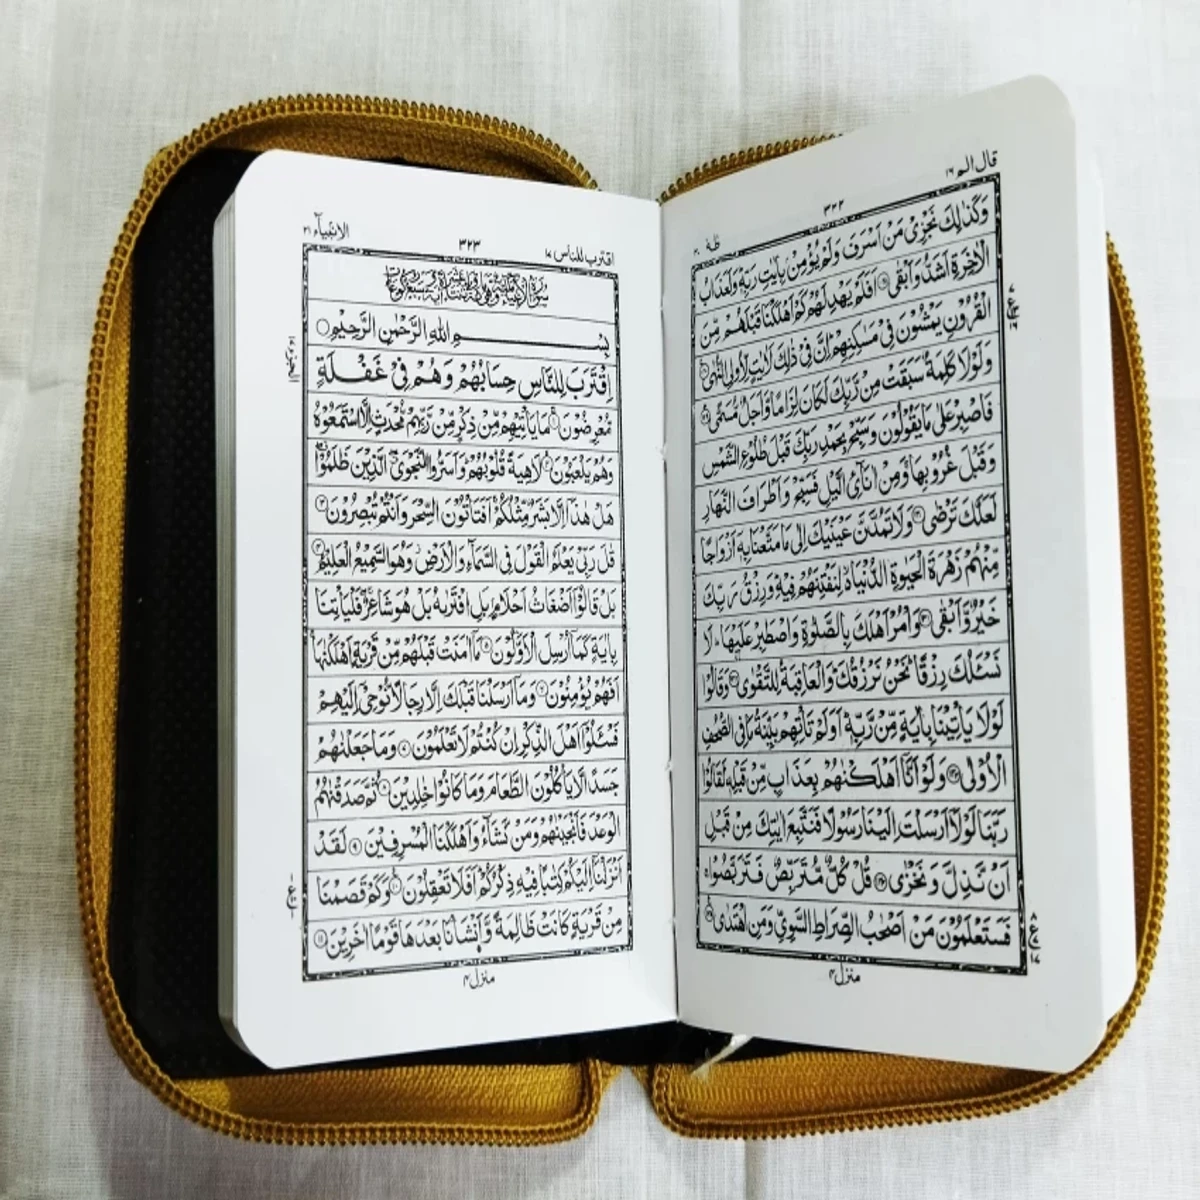 قال الم ١٦
٣٢٢
طٰهٰ ٢٠
وَكَذٰلِكَ نَجْزِىْ مَنْ اَسْرَفَ وَلَمْ يُؤْمِنْۢ بِاٰيٰتِ رَبِّهٖ وَلَعَذَابُ
الْاٰخِرَةِ اَشَدُّ وَاَبْقٰى اَفَلَمْ يَهْدِ لَهُمْ كَمْ اَهْلَكْنَا قَبْلَهُمْ مِّنَ
الْقُرُوْنِ يَمْشُوْنَ فِىْ مَسٰكِنِهِمْ اِنَّ فِىْ ذٰلِكَ لَاٰيٰتٍ لِّاُولِى النُّهٰى
وَلَوْلَا كَلِمَةٌ سَبَقَتْ مِنْ رَّبِّكَ لَكَانَ لِزَامًا وَّاَجَلٌ مُّسَمًّى
فَاصْبِرْ عَلٰى مَا يَقُوْلُوْنَ وَسَبِّحْ بِحَمْدِ رَبِّكَ قَبْلَ طُلُوْعِ الشَّمْسِ
وَقَبْلَ غُرُوْبِهَا وَمِنْ اٰنَآئِ الَّيْلِ فَسَبِّحْ وَاَطْرَافَ النَّهَارِ
لَعَلَّكَ تَرْضٰى وَلَا تَمُدَّنَّ عَيْنَيْكَ اِلٰى مَا مَتَّعْنَا بِهٖٓ اَزْوَاجًا
مِّنْهُمْ زَهْرَةَ الْحَيٰوةِ الدُّنْيَا لِنَفْتِنَهُمْ فِيْهِ وَرِزْقُ رَبِّكَ
خَيْرٌ وَّاَبْقٰى وَاْمُرْ اَهْلَكَ بِالصَّلٰوةِ وَاصْطَبِرْ عَلَيْهَا لَا
نَسْـَٔلُكَ رِزْقًا نَحْنُ نَرْزُقُكَ وَالْعَاقِبَةُ لِلتَّقْوٰى وَقَالُوْا
لَوْلَا يَاْتِيْنَا بِاٰيَةٍ مِّنْ رَّبِّهٖ اَوَلَمْ تَاْتِهِمْ بَيِّنَةُ مَا فِى الصُّحُفِ
الْاُوْلٰى وَلَوْ اَنَّآ اَهْلَكْنٰهُمْ بِعَذَابٍ مِّنْ قَبْلِهٖ لَقَالُوْا
رَبَّنَا لَوْلَآ اَرْسَلْتَ اِلَيْنَا رَسُوْلًا فَنَتَّبِعَ اٰيٰتِكَ مِنْ قَبْلِ
اَنْ نَّذِلَّ وَنَخْزٰى قُلْ كُلٌّ مُّتَرَبِّصٌ فَتَرَبَّصُوْا
فَسَتَعْلَمُوْنَ مَنْ اَصْحٰبُ الصِّرَاطِ السَّوِيِّ وَمَنِ اهْتَدٰى
منزل ٤
اقترب للناس ١٧
٣٢٣
الانبيآء ٢١
بِسْمِ اللّٰهِ الرَّحْمٰنِ الرَّحِيْمِ
اِقْتَرَبَ لِلنَّاسِ حِسَابُهُمْ وَهُمْ فِىْ غَفْلَةٍ
مُّعْرِضُوْنَ مَا يَاْتِيْهِمْ مِّنْ ذِكْرٍ مِّنْ رَّبِّهِمْ مُّحْدَثٍ اِلَّا اسْتَمَعُوْهُ
وَهُمْ يَلْعَبُوْنَ لَاهِيَةً قُلُوْبُهُمْ وَاَسَرُّوا النَّجْوَى الَّذِيْنَ ظَلَمُوْا
هَلْ هٰذَآ اِلَّا بَشَرٌ مِّثْلُكُمْ اَفَتَاْتُوْنَ السِّحْرَ وَاَنْتُمْ تُبْصِرُوْنَ
قٰلَ رَبِّىْ يَعْلَمُ الْقَوْلَ فِى السَّمَآءِ وَالْاَرْضِ وَهُوَ السَّمِيْعُ الْعَلِيْمُ
بَلْ قَالُوْٓا اَضْغَاثُ اَحْلَامٍۭ بَلِ افْتَرٰىهُ بَلْ هُوَ شَاعِرٌ فَلْيَاْتِنَا
بِاٰيَةٍ كَمَآ اُرْسِلَ الْاَوَّلُوْنَ مَآ اٰمَنَتْ قَبْلَهُمْ مِّنْ قَرْيَةٍ اَهْلَكْنٰهَا
اَفَهُمْ يُؤْمِنُوْنَ وَمَآ اَرْسَلْنَا قَبْلَكَ اِلَّا رِجَالًا نُّوْحِىْٓ اِلَيْهِمْ
فَسْـَٔلُوْٓا اَهْلَ الذِّكْرِ اِنْ كُنْتُمْ لَا تَعْلَمُوْنَ وَمَا جَعَلْنٰهُمْ
جَسَدًا لَّا يَاْكُلُوْنَ الطَّعَامَ وَمَا كَانُوْا خٰلِدِيْنَ ثُمَّ صَدَقْنٰهُمُ
الْوَعْدَ فَاَنْجَيْنٰهُمْ وَمَنْ نَّشَآءُ وَاَهْلَكْنَا الْمُسْرِفِيْنَ لَقَدْ
اَنْزَلْنَآ اِلَيْكُمْ كِتٰبًا فِيْهِ ذِكْرُكُمْ اَفَلَا تَعْقِلُوْنَ وَكَمْ قَصَمْنَا
مِنْ قَرْيَةٍ كَانَتْ ظَالِمَةً وَّاَنْشَاْنَا بَعْدَهَا قَوْمًا اٰخَرِيْنَ
منزل ٤